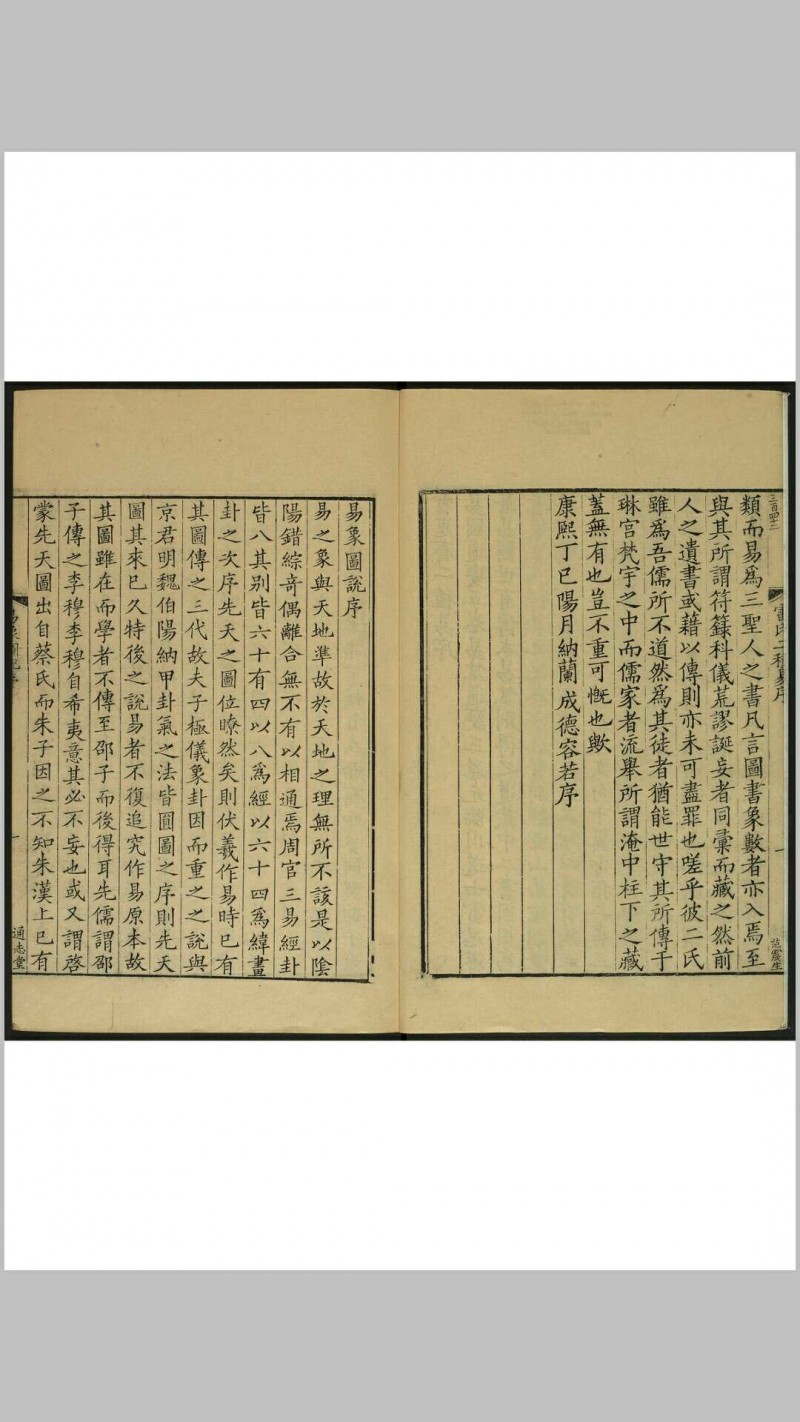 三百四二
雷氏二種易序
一
范震生
類而易爲三聖人之書凡言圖書象數者亦入焉至
與其所謂符籙科儀荒謬誕妄者同彚而藏之然前
人之遺書或藉以傳則亦未可盡罪也嗟乎彼二氏
雖爲吾儒所不道然爲其徒者猶能世守其所傳于
琳宫梵宇之中而儒家者流舉所謂淹中柱下之藏
蓋無有也豈不重可慨也歟
康熙丁巳陽月納蘭成德容若序
易象圖說序
易之象與天地準故於天地之理無所不該是以陰
陽錯綜奇偶離合無不有以相通焉周官三易經卦
皆八其别皆六十有四以八爲經以六十四爲緯畫
卦之次序先天之圖位瞭然矣則伏羲作易時已有
其圖傳之三代故夫子極儀象卦因而重之之說與
京君明魏伯陽納甲卦氣之法皆圓圖之序則先天
圖其來已久特後之說易者不復追究作易原本故
其圖雖在而學者不傳至邵子而後得耳先儒謂邵
子傳之李穆李穆自希夷意其必不妄也或又謂啓
蒙先天圖出自蔡氏而朱子因之不知朱漢上已有
一
通志堂